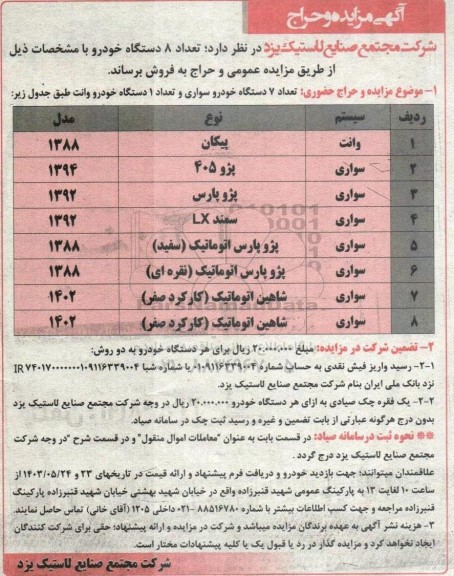 آگهی مزایده و حراج
شرکت مجتمع صنایع لاستیک یزد در نظر دارد؛ تعداد ۸ دستگاه خودرو با مشخصات ذیل
از طریق مزایده عمومی و حراج به فروش برساند.
۱- موضوع مزایده و حراج حضوری: تعداد ۷ دستگاه خودرو سواری و تعداد ۱ دستگاه خودرو وانت طبق جدول زیر:
ردیف سیستم نوع مدل
۱ وانت پیکان ۱۳۸۸
۲ سواری پژو ۴۰۵ ۱۳۹۴
۳ سواری پژو پارس ۱۳۹۲
۴ سواری سمند LX ۱۳۹۲
۵ سواری پژو پارس اتوماتیک (سفید) ۱۳۸۸
۶ سواری پژو پارس اتوماتیک (نقره ای) ۱۳۸۸
۷ سواری شاهین اتوماتیک (کارکرد صفر) ۱۴۰۲
۸ سواری شاهین اتوماتیک (کارکرد صفر) ۱۴۰۲
۲- تضمین شرکت در مزایده: مبلغ ۲۰۰،۰۰۰،۰۰۰ ریال برای هر دستگاه خودرو به دو روش:
۲-۱- رسید واریز فیش نقدی به حساب شماره ۰۱۰۹۱۱۶۳۳۹۰۰۴ با شماره شبا IR ۷۴۰۱۷۰۰۰۰۰۰۰۱۰۹۱۱۶۳۳۹۰۰۴
نزد بانک ملی ایران بنام شرکت مجتمع صنایع لاستیک یزد.
۲-۲- یک فقره چک صیادی به ازای هر دستگاه خودرو ۲۰۰،۰۰۰،۰۰۰ ریال در وجه شرکت مجتمع صنایع لاستیک یزد
بدون درج هرگونه عبارتی از بابت تضمین و غیره و رسید ثبت چک در سامانه صیاد.
** نحوه ثبت در سامانه صیاد: در قسمت بابت به عنوان "معاملات اموال منقول" و در قسمت شرح "در وجه شرکت
مجتمع صنایع لاستیک یزد درج گردد.
علاقمندان میتوانند؛ جهت بازدید خودرو و دریافت فرم پیشنهاد و ارائه قیمت در تاریخهای ۲۳ و ۱۴۰۳/۰۵/۲۴ از
ساعت ۱۰ لغایت ۱۳ به پارکینگ عمومی شهید قنبرزاده واقع در خیابان شهید بهشتی خیابان شهید قنبرزاده پارکینگ
قنبرزاده مراجعه و جهت کسب اطلاعات بیشتر با شماره ۸۸۵۱۶۷۸۰ -۰۲۱ داخلی ۱۲۰۵ (آقای خانی) تماس حاصل نمایند.
۳- هزینه نشر آگهی به عهده برندگان مزایده میباشد و شرکت در مزایده و ارائه پیشنهاد؛ حقی برای شرکت کنندگان
ایجاد نخواهد کرد و مزایده گذار در رد یا قبول یک یا کلیه پیشنهادات مختار است.
شرکت مجتمع صنایع لاستیک یزد